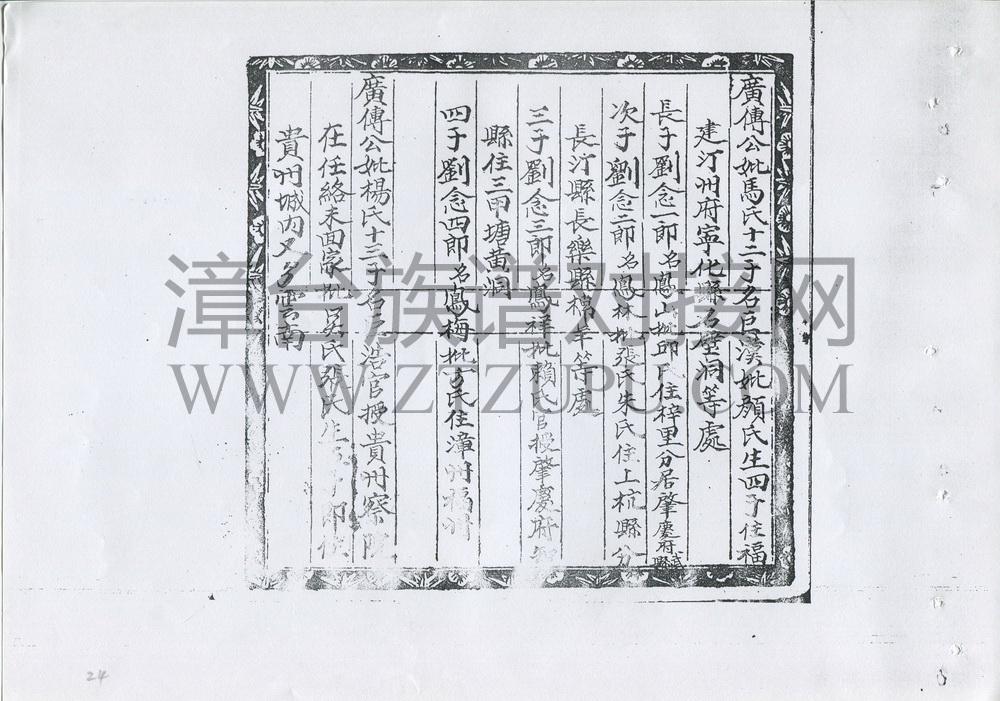 廣傳公妣馬氏十二子名巨漢妣顏氏生四子住福
建汀州府寧化縣石壁洞等處
長子劉念一郎名鳳山妣邱氏住梓里分居肇慶府
次子劉念二郎名鳳林妣張氏朱氏住上杭縣分
長汀縣長樂縣等處
三子劉念三郎名鳳祥妣賴氏官授肇慶府知
縣住三甲塘黃洞
四子劉念四郎名鳳梅妣李氏住漳州福州
廣傳公妣楊氏十三子名巨浩官授貴州察院
在任絡未面家妣吳氏張氏生子即住
貴州城內又名雲南
漳台族谱对接网
WWW.ZTZUPU.COM
24